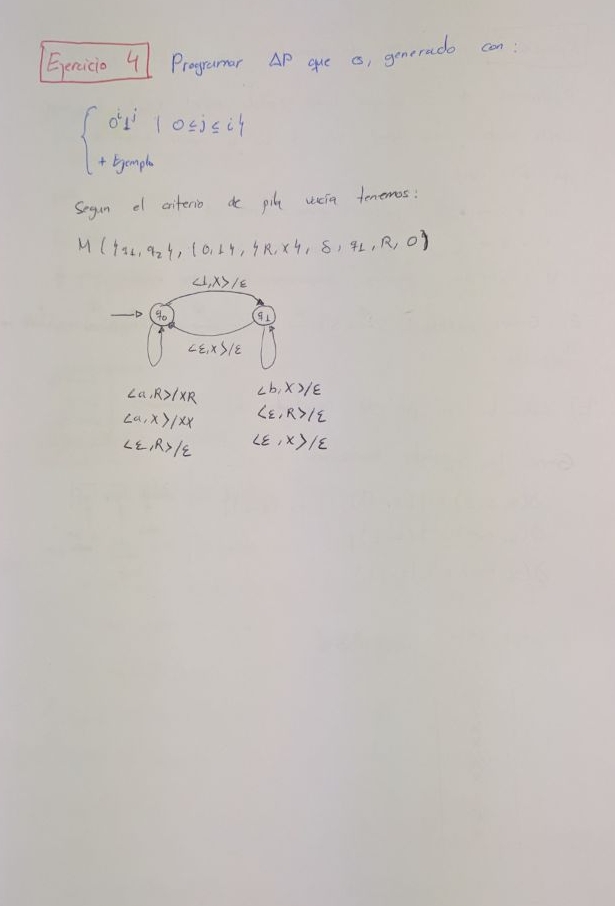 Ejercicio 4 Programar AP que es, generado con:
{ 0^i 1^j | 0 ≤ j ≤ i }
+ Ejemplo
Segun el criterio de pila vacía tenemos:
M ( {q1, q2}, {0,1}, {R,X}, δ, q1, R, 0 )
<1,X>/ε
q0 q1
<ε,X>/ε
<a,R>/XR <b,X>/ε
<a,X>/XX <ε,R>/ε
<ε,R>/ε <ε,X>/ε